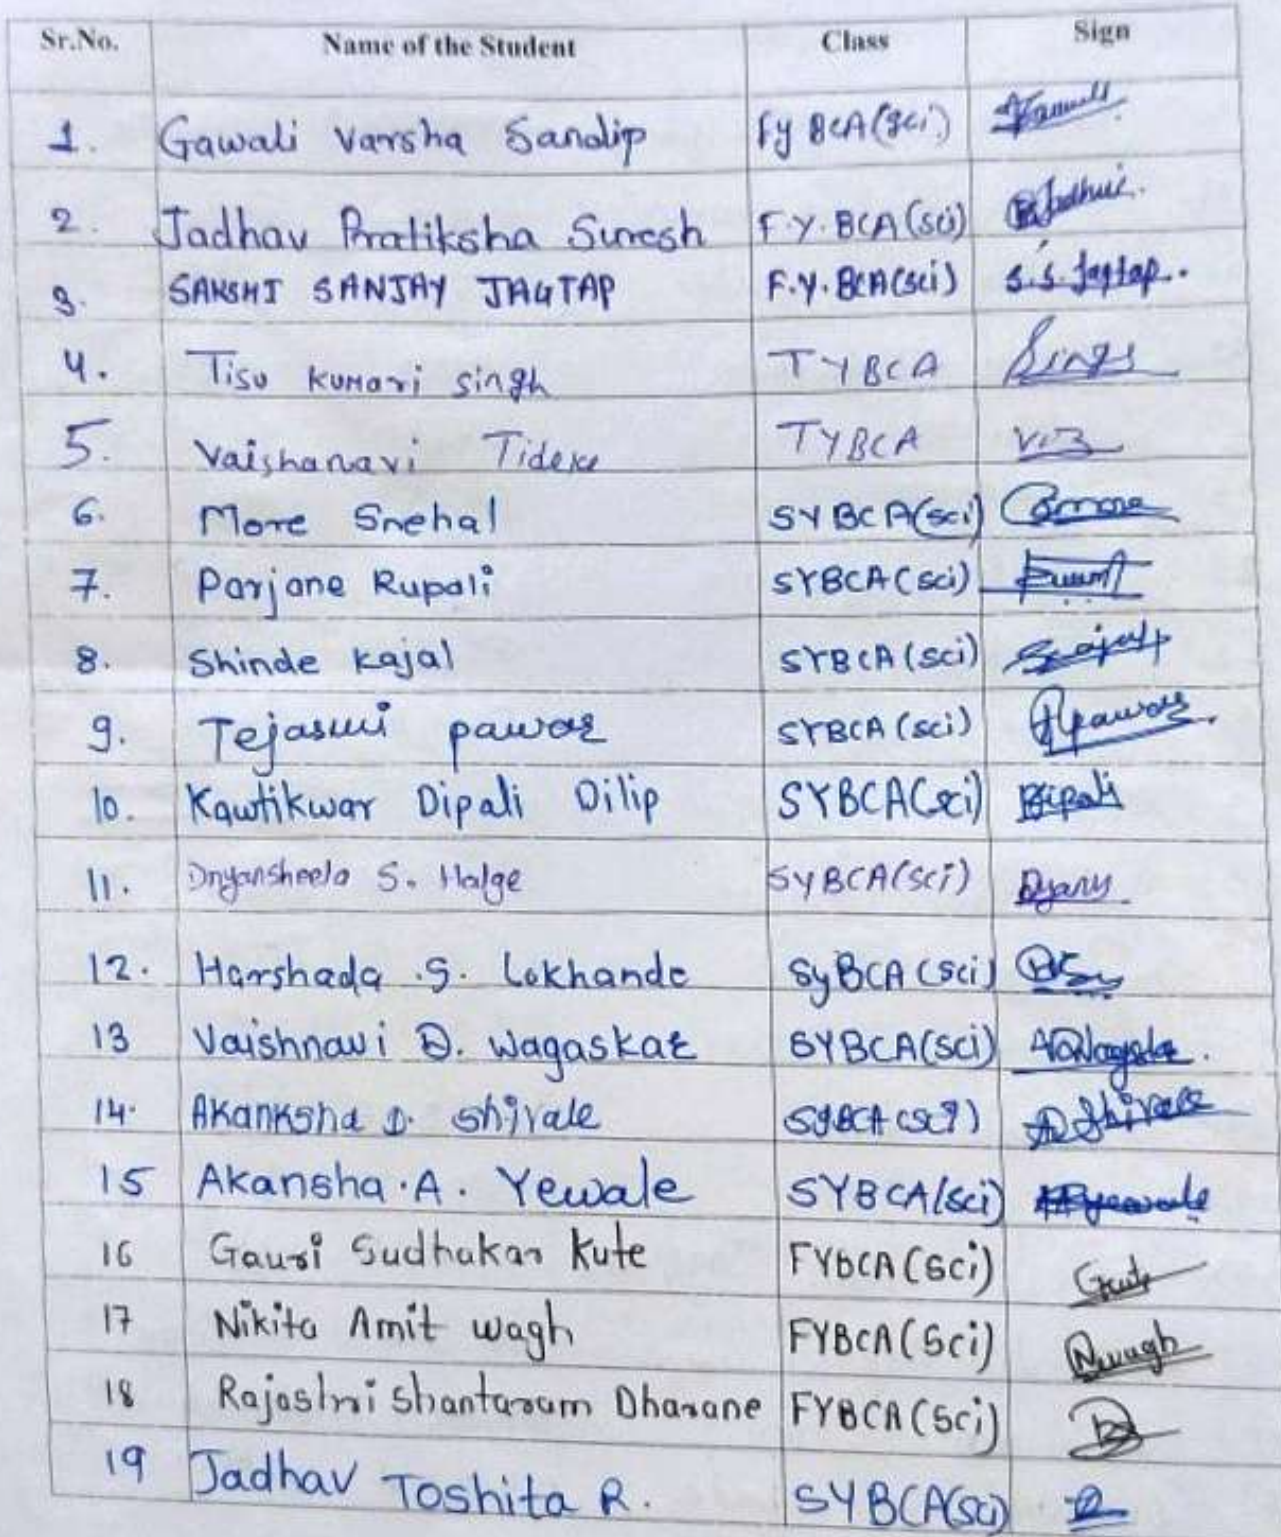 Sr.No. Name of the Student Class Sign
1. Gawali Varsha Sandip Fy BCA(sci)
2. Jadhav Pratiksha Suresh F.Y.BCA(sci) Jadhav.
3. SAKSHI SANJAY JAGTAP F.Y.BCA(sci) S.S.Jagtap.
4. Tisu kumari singh TYBCA Singh
5. Vaishanavi Tideke TYBCA
6. More Snehal SYBCA(sci)
7. Parjane Rupali SYBCA(sci)
8. Shinde Kajal SYBCA(sci)
9. Tejaswi pawar SYBCA(sci) pawar.
10. Kawtikwar Dipali Dilip SYBCA(sci) Dipali
11. Dnyansheela S. Halge SYBCA(sci)
12. Harshada .S. Lokhande SyBCA(sci)
13 Vaishnavi D. Wagaskar SYBCA(sci)
14. Akanksha D. Shivale SYBCA(sci) Shivale
15 Akansha.A. Yewale SYBCA(sci)
16 Gauri Sudhakar Kute FYBCA(Sci)
17 Nikita Amit wagh FYBCA(Sci) Nwagh
18 Rajashri Shantaram Dharane FYBCA(Sci)
19 Jadhav Toshita R. SYBCA(sci)